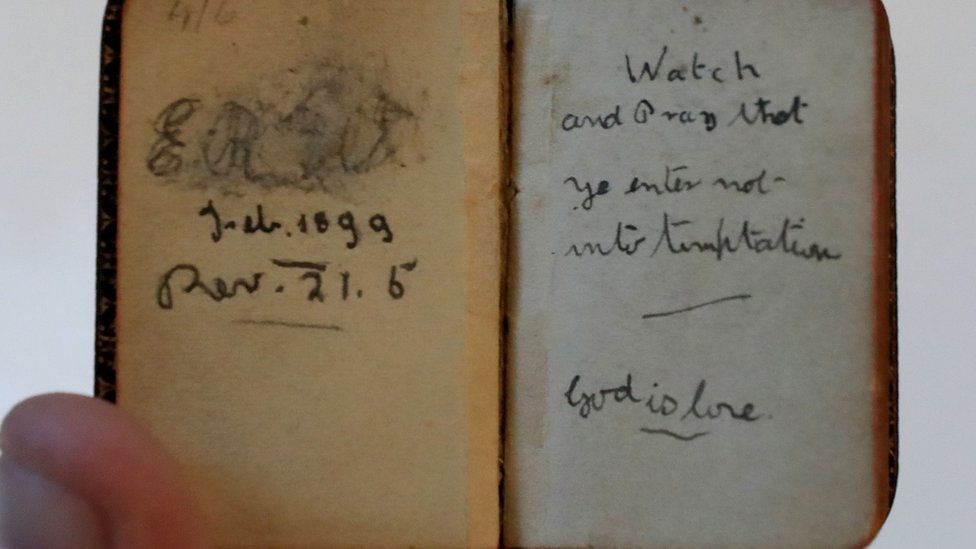 4/6
Feb. 1899
Rev. 21. 5
Watch
and Pray that
ye enter not
into temptation
God is love.